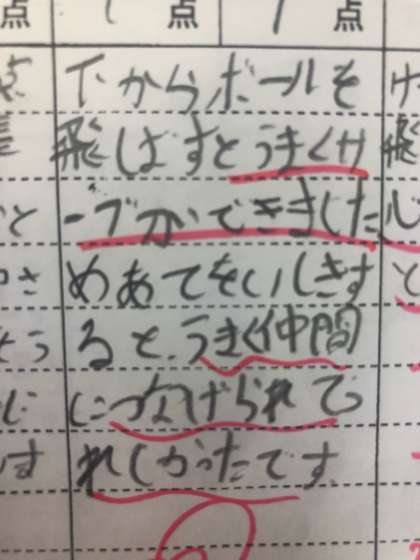 点 点 点
下からボールを
飛ばすとうまくサ
ーブができました
めあてをいしきす
ると、うまく仲間
につなげられてう
れしかったです。